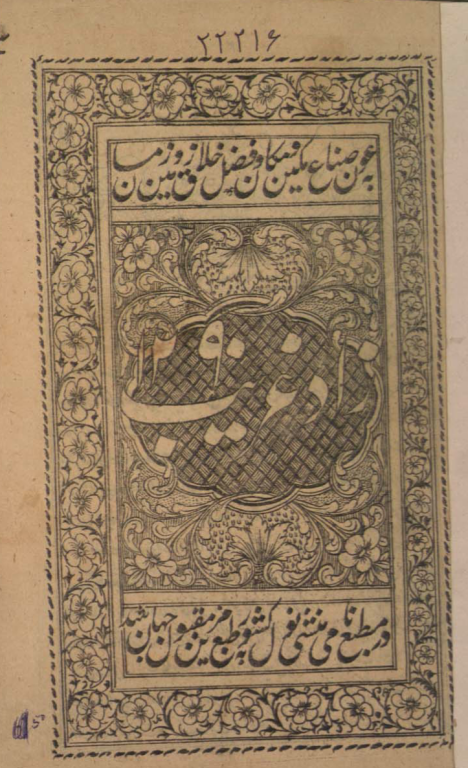 ۲۲۲۱۶
بعون صناع مکین و مکان و فضل خلاق زمین و زمان
زاد غریب
در مطبع نامی منشی نول کشور بطبع مزین مقبول جهان شد